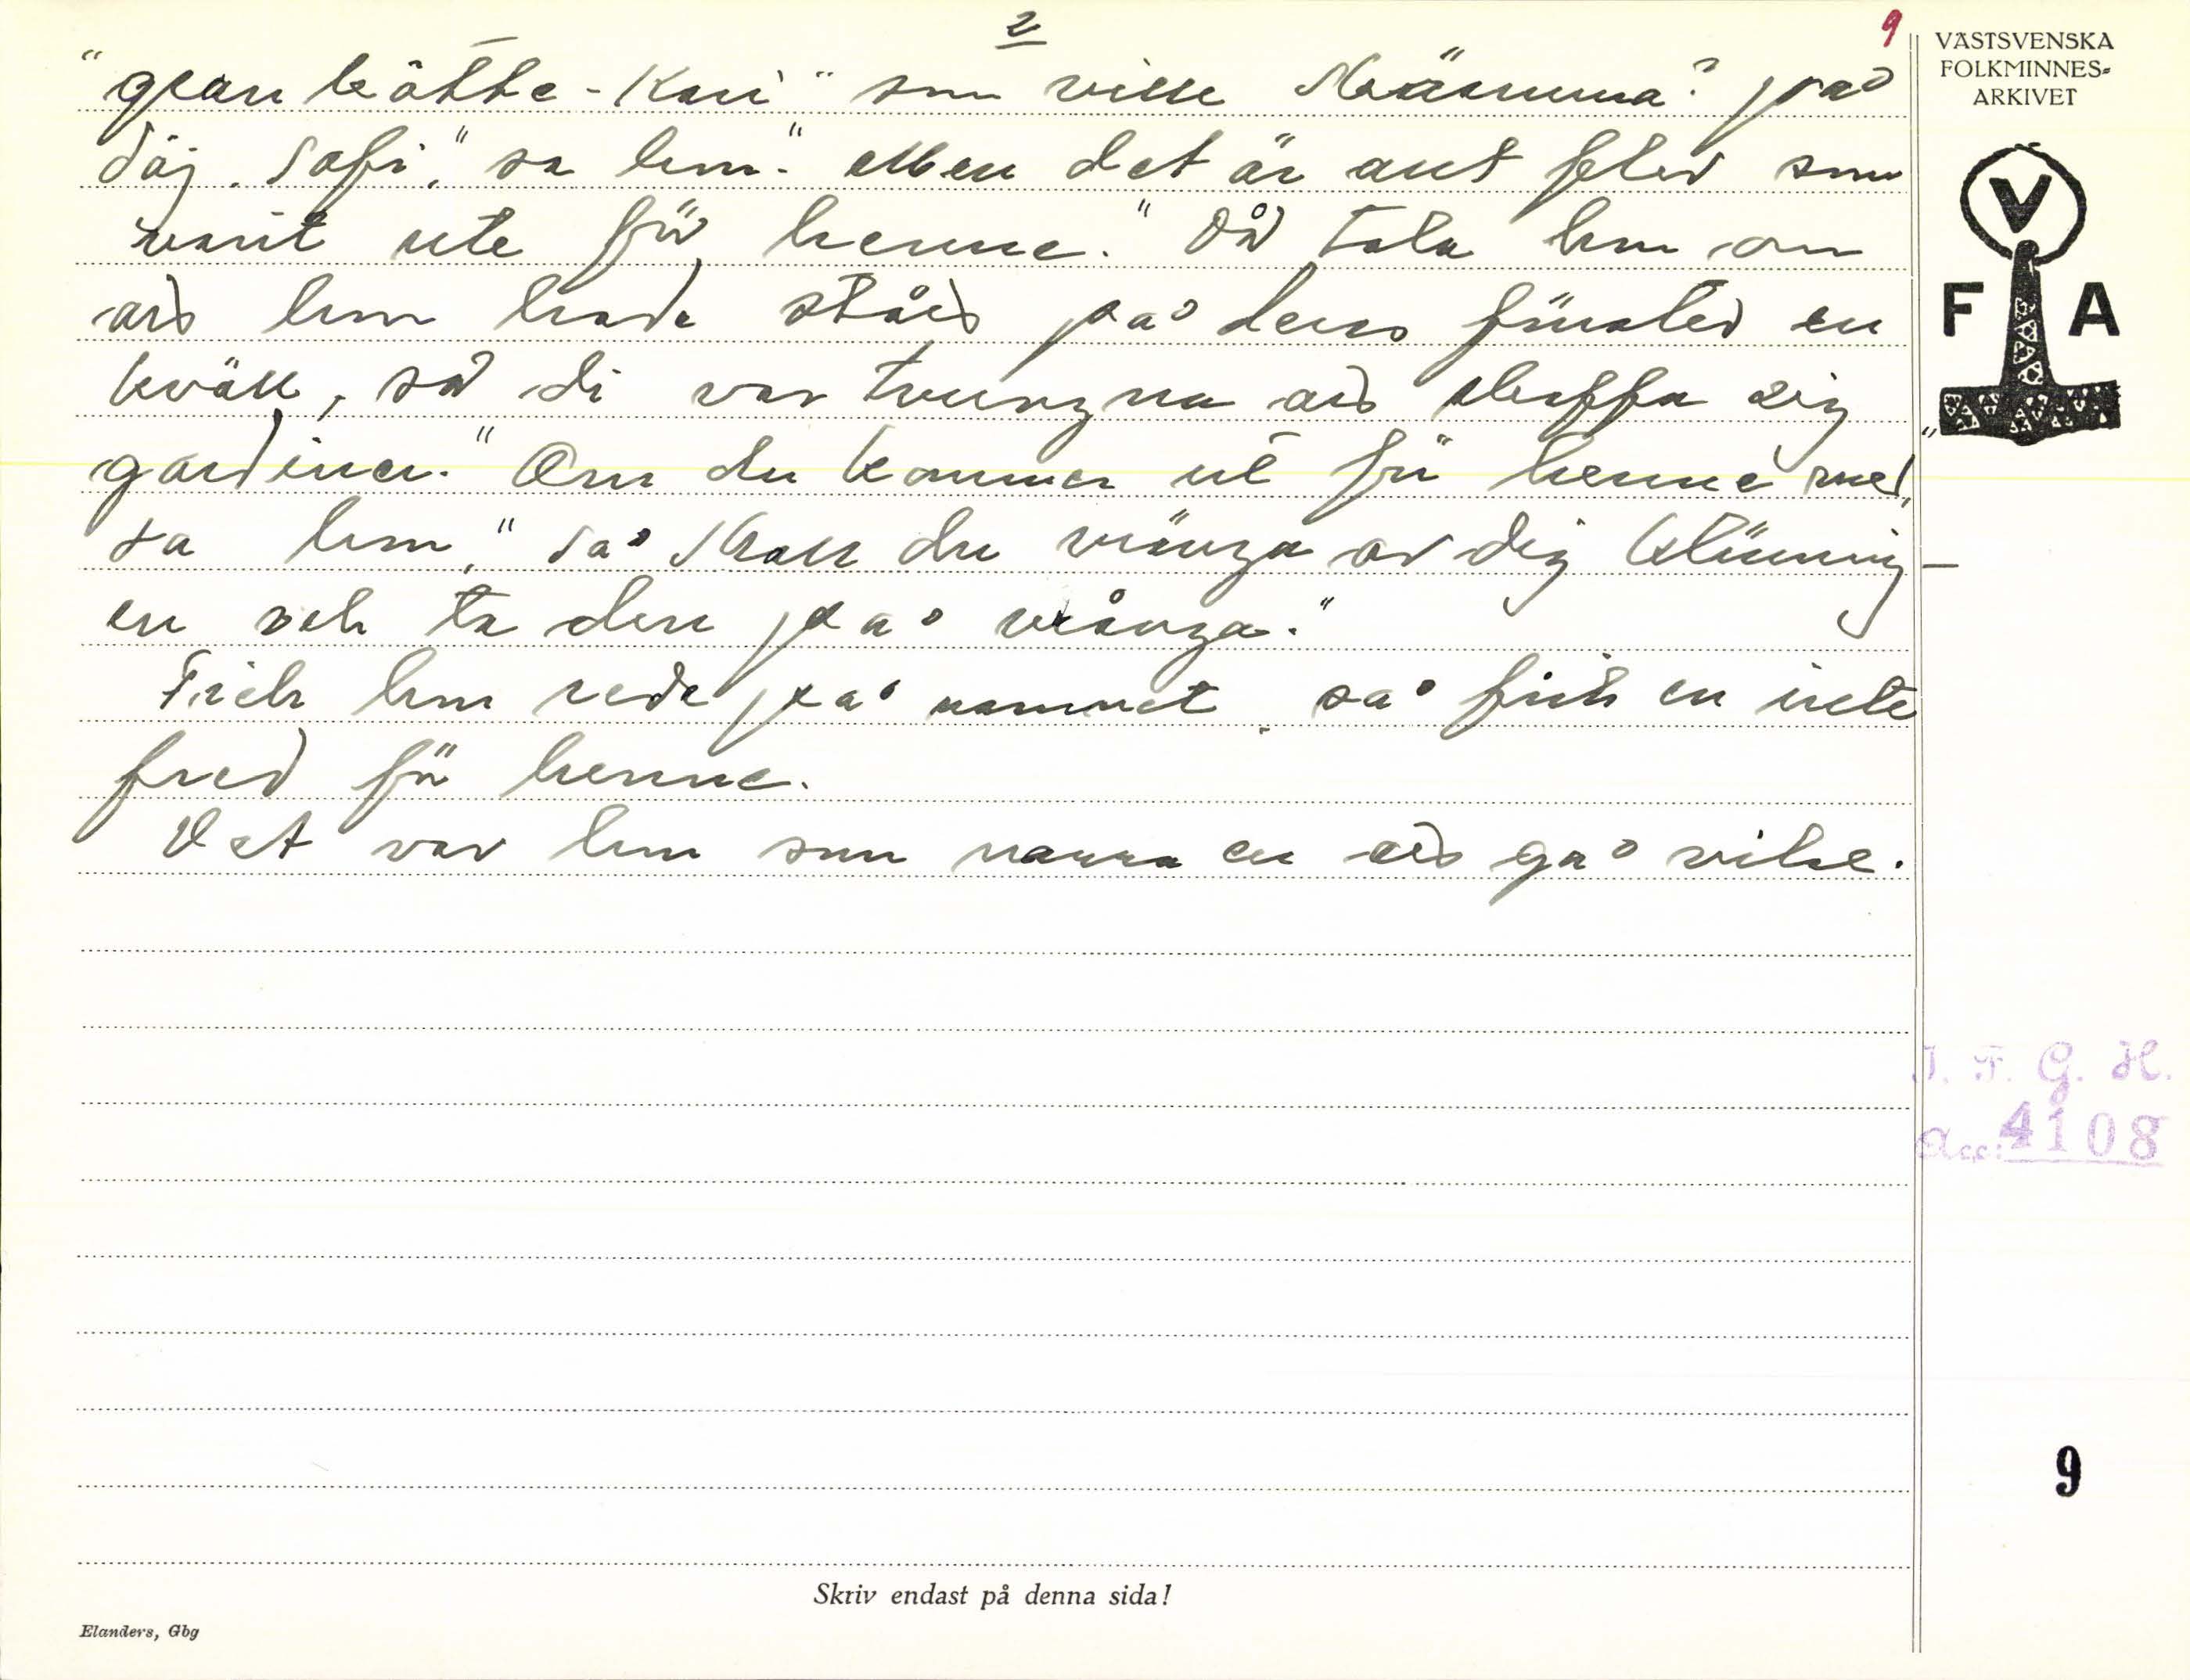 2
9
"gran kôtte-Kari" som ville skrämma på
däj, Sofi," sa hon. "Men det är ant folk som
varit ute för henne." Då tala hon om
att hon hade stått på deras fönster en
kväll, så di var tvungna att skaffa sig
gardiner. "Om du kommer ut för henne med,"
sa hon, "så skall du vränga av dig klänning-
en och ta den på vrånga."
Fick hon reda på namnet, så fick en inte
fred för henne.
Det var hon som narra en att gå vilse.
VÄSTSVENSKA
FOLKMINNES-
ARKIVET
V
F A
I. F. G. H.
Acc: 4108
9
Skriv endast på denna sida!
Elanders, Gbg